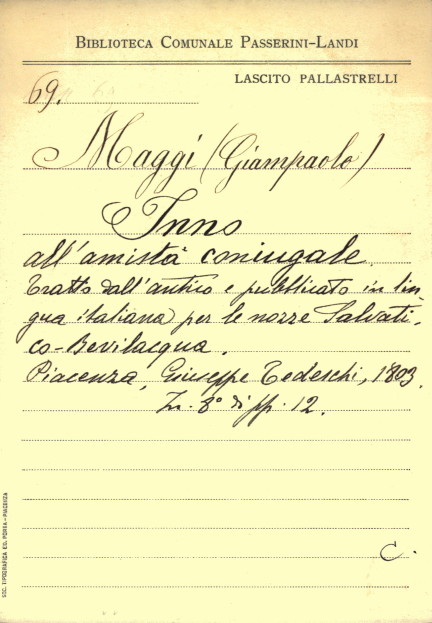 BIBLIOTECA COMUNALE PASSERINI-LANDI
LASCITO PALLASTRELLI
69.
Maggi (Giampaolo)
Inno
all'amistà coniugale.
Tratto dall'antico e pubblicato in lin
gua italiana per le nozze Salvati-
co-Bevilacqua.
Piacenza, Giuseppe Tedeschi, 1803.
In 8° di pp. 12.
C.
SOC. TIPOGRAFICA ED. PORTA - PIACENZA